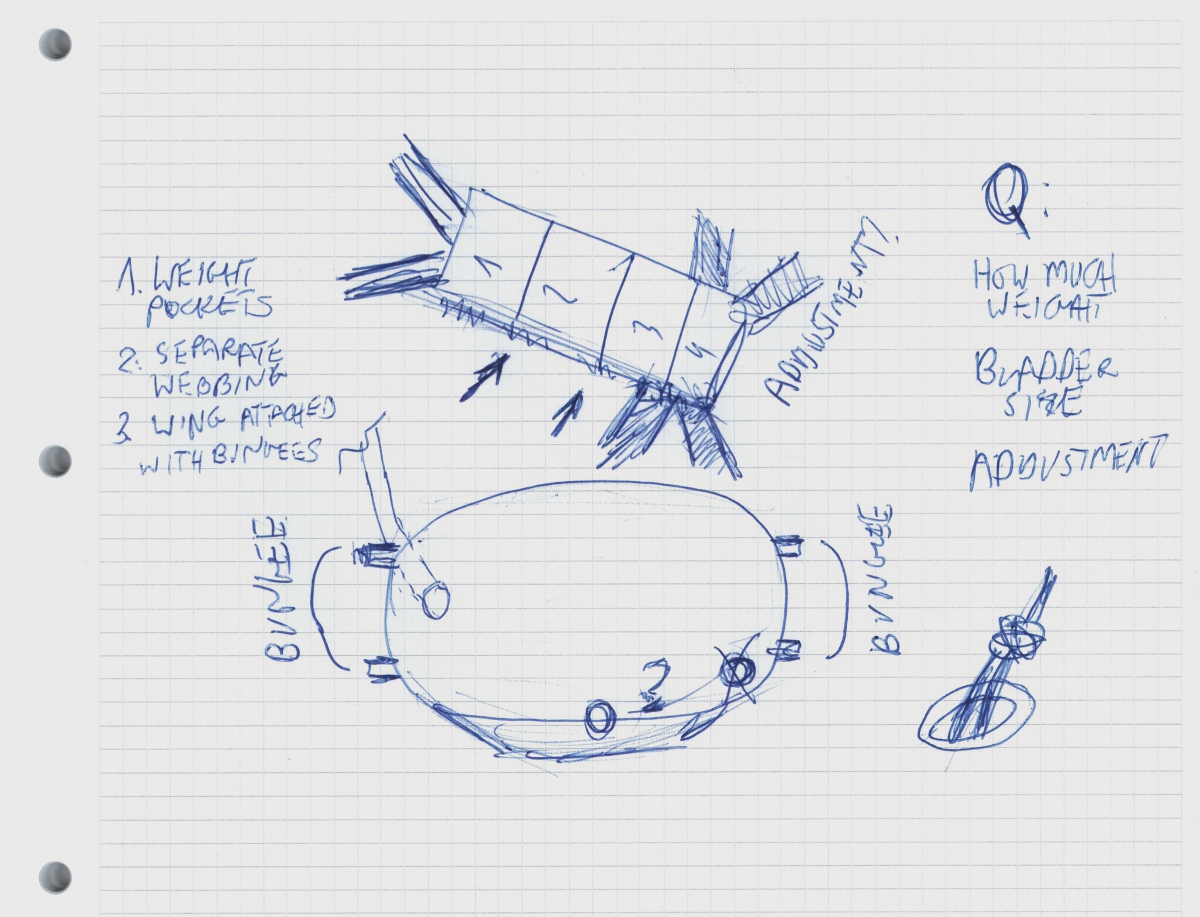 1. WEIGHT
POCKETS
2. SEPARATE
WEBBING
3. WING ATTACHED
WITH BUNGEES
1
2
3
4
ADJUSTMENT?
Q:
HOW MUCH
WEIGHT
BLADDER
SIZE
ADJUSTMENT
BUNGEE
?
BUNGEE